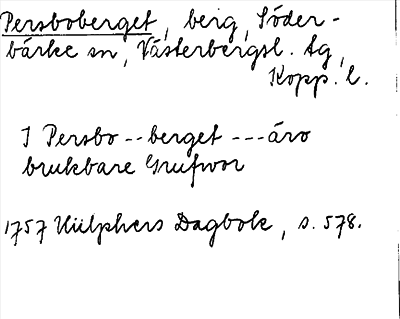 Persboberget, berg, Söder-
bärke sn, Västerbergsl. tg,
Kopp. l.
I Persbo -- berget --- äro
brukbare Grufwor
1757 Hülphers Dagbok, s. 578.